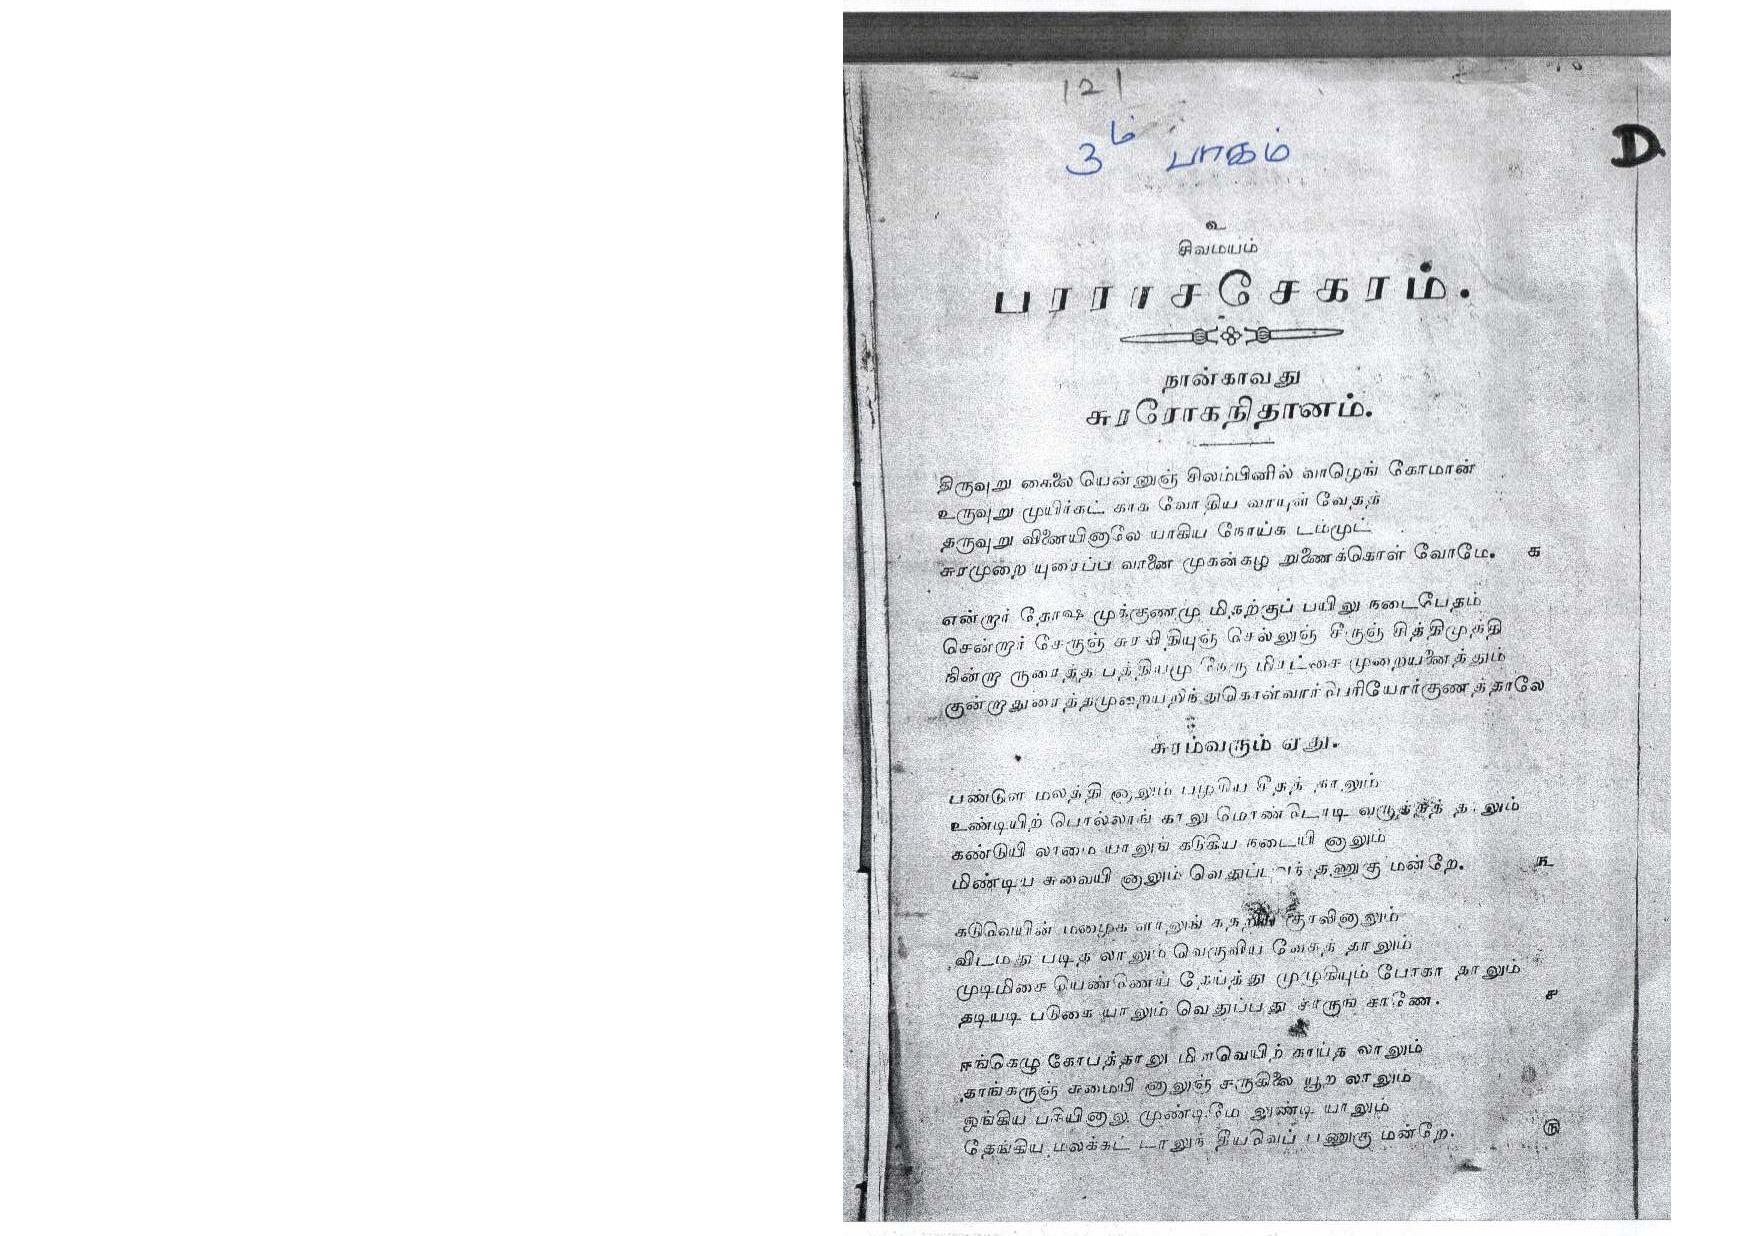 121
3ம் பாகம்
D
உ
சிவமயம்
பரராசசேகரம்.
நான்காவது
சுரரோகநிதானம்.
திருவுறு கைலை யென்னுஞ் சிலம்பினில் வாழெங் கோமான்
உருவுறு முயிர்கட் காக வோதிய வாயுள் வேதந்
தருவுறு வினையினாலே யாகிய நோய்க டம்முட்
சுரமுறை யுரைப்ப வானை முகன்கழ றுணைக்கொள் வோமே. க
என்றூர் தோஷ முக்குணமு மிதற்குப் பயிலு நடைபேதம்
சென்றூர் சேருஞ் சுரவிதியுஞ் செல்லுஞ் சீருஞ் சித்திமுத்தி
நின்றூ ருரைத்த பத்தியமு முறையனைத்தும்
குன்றூதுரைத்தமுறையறிந்துகொள்வார்பெரியோர்குணத்தாலே
சுரம்வரும் ஏது.
பண்டுள மலத்தி னாலும் பழகிய சீதத் தாலும்
உண்டியிற் பொல்லாங் காலு மொண்டொடி வருத்தத் தாலும்
கண்டுயி லாமை யாலுங் கடுகிய நடையி னாலும்
மிண்டிய சுவையி னாலும் தணுகு மன்றே. ௩
கடுவெயின் மழைக ளாலுங் கதறிய குரலினாலும்
விடமது படித லாலும் வெருவிய வேகத் தாலும்
முடிமிசை யெண்ணெய் தேய்த்து முழுகியும் போகா தாலும்
தடியடி படுகை யாலும் வெதுப்பது சாருங் காணே. ௪
ஈங்கெழு கோபத்தாலு மிளவெயிற் காய்த லாலும்
தாங்கருஞ் சுமையி னாலுஞ் சருகிலை யூற லாலும்
ஓங்கிய பசியினாலு முண்டிமே லுண்டி யாலும்
தேங்கிய மலக்கட் டாலுந் தீயவெப் பணுகு மன்றே. ௫